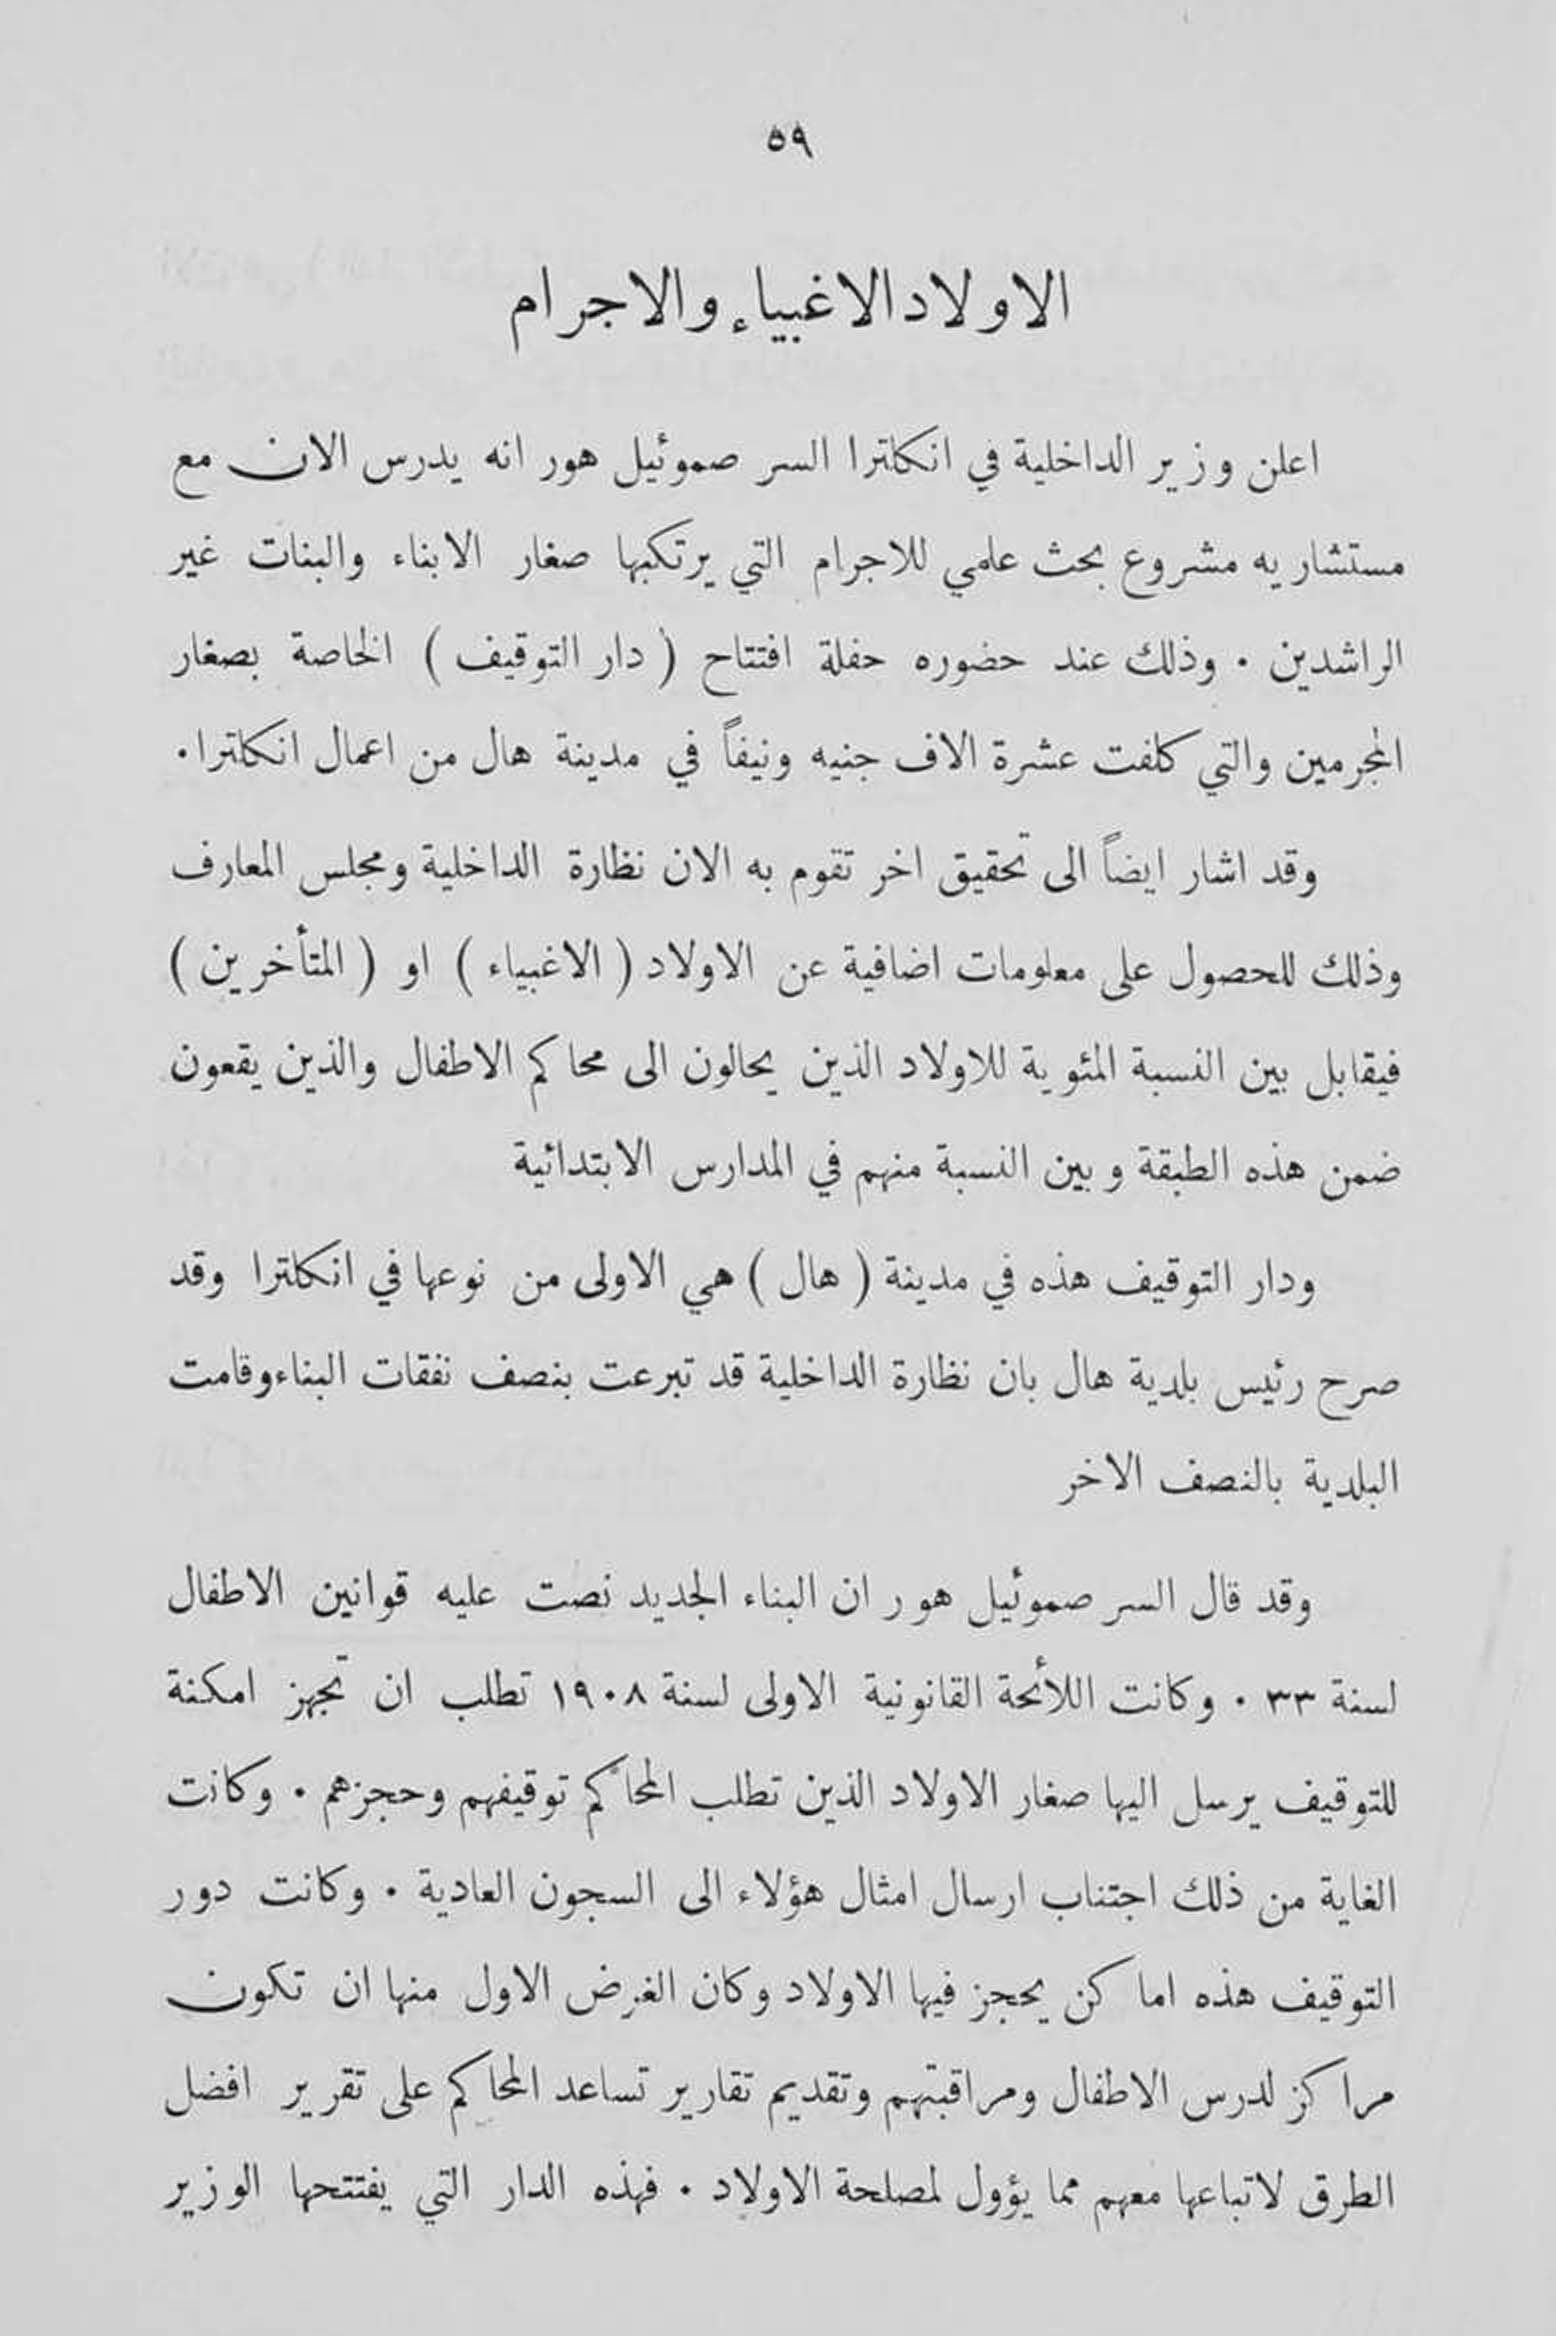 ٥٩
الاولاد الاغبياء والاجرام
اعلن وزير الداخلية في انكلترا السر صموئيل هور انه يدرس الان مع
مستشاريه مشروع بحث علمي للاجرام التي يرتكبها صغار الابناء والبنات غير
الراشدين . وذلك عند حضوره حفلة افتتاح ( دار التوقيف ) الخاصة بصغار
المجرمين والتي كلفت عشرة الاف جنيه ونيفاً في مدينة هال من اعمال انكلترا .
وقد اشار ايضاً الى تحقيق اخر تقوم به الان نظارة الداخلية ومجلس المعارف
وذلك للحصول على معلومات اضافية عن الاولاد ( الاغبياء ) او ( المتأخرين )
فيقابل بين النسبة المئوية للاولاد الذين يحالون الى محاكم الاطفال والذين يقعون
ضمن هذه الطبقة وبين النسبة منهم في المدارس الابتدائية
ودار التوقيف هذه في مدينة ( هال ) هي الاولى من نوعها في انكلترا وقد
صرح رئيس بلدية هال بان نظارة الداخلية قد تبرعت بنصف نفقات البناء وقامت
البلدية بالنصف الاخر
وقد قال السر صموئيل هور ان البناء الجديد نصت عليه قوانين الاطفال
لسنة ٣٣ . وكانت اللأئحة القانونية الاولى لسنة ١٩٠٨ تطلب ان تجهز امكنة
للتوقيف يرسل اليها صغار الاولاد الذين تطلب المحاكم توقيفهم وحجزهم . وكانت
الغاية من ذلك اجتناب ارسال امثال هؤلاء الى السجون العادية . وكانت دور
التوقيف هذه اماكن يحجز فيها الاولاد وكان الغرض الاول منها ان تكون
مراكز لدرس الاطفال ومراقبتهم وتقديم تقارير تساعد المحاكم على تقرير افضل
الطرق لاتباعها معهم مما يؤول لمصلحة الاولاد . فهذه الدار التي يفتتحها الوزير